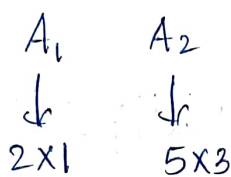 A₁ A₂
↓ ↓
2X1 5X3